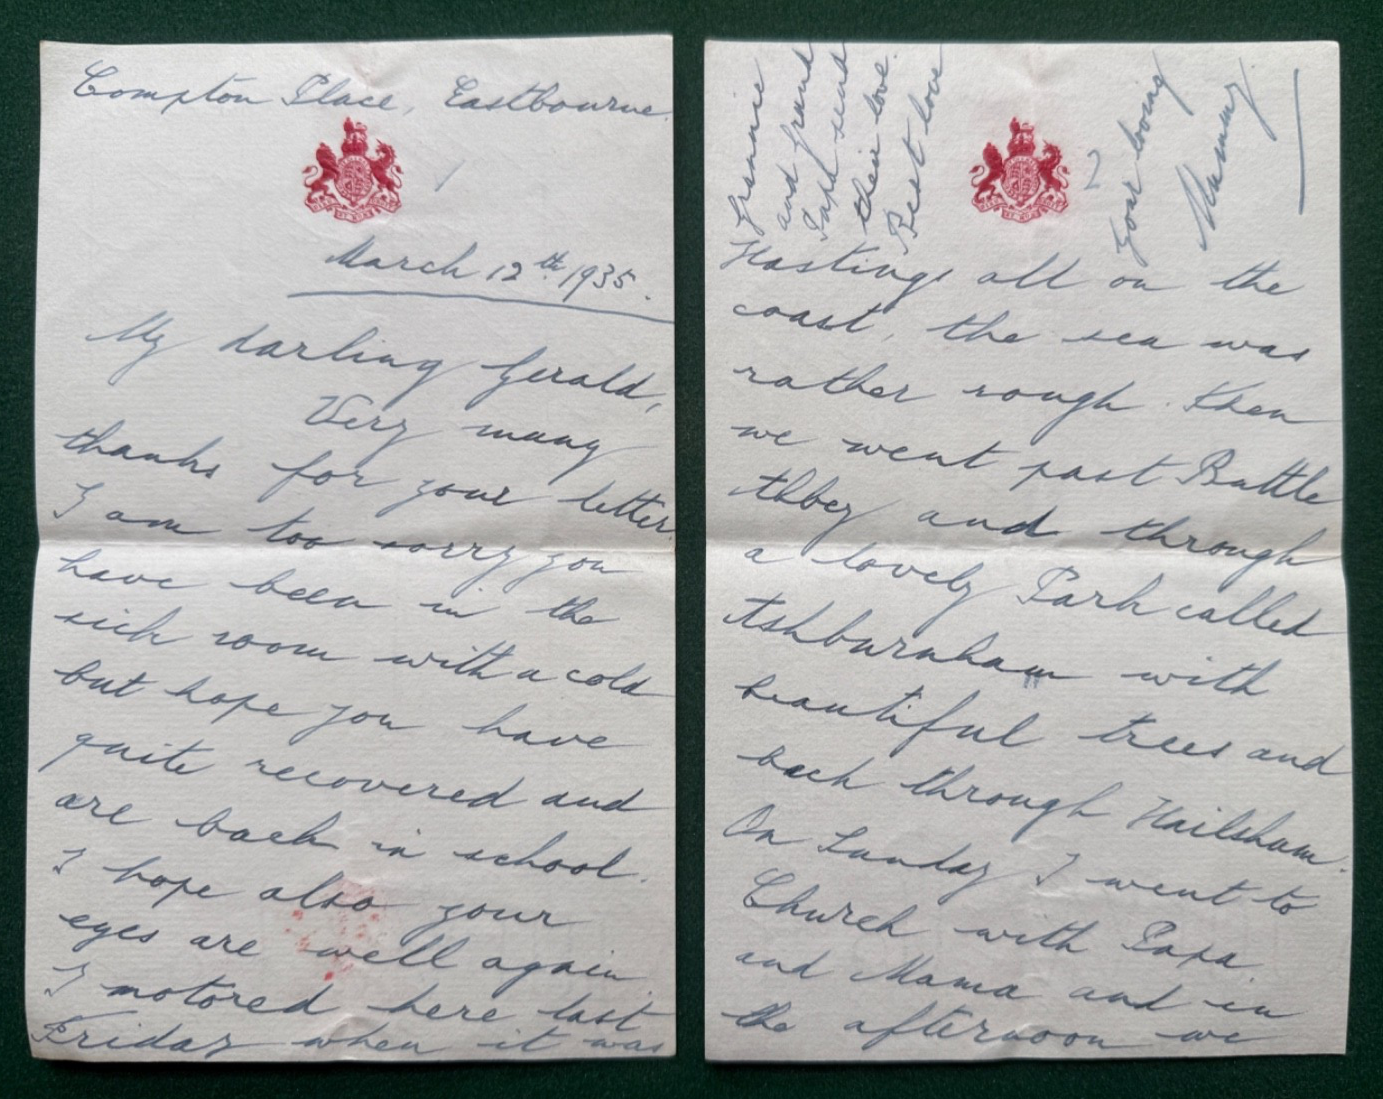 Compton Place, Eastbourne.
March 12th 1935.
My darling Gerald,
Very many
thanks for your letter.
I am too sorry you
have been in the
sick room with a cold
but hope you have
quite recovered and
are back in school.
I hope also your
eyes are well again.
I motored here last
Friday when it was
Grannie
and grand
Papa send
their love.
Best love
2
Your loving
Mummy
Hastings all on the
coast, the sea was
rather rough. Then
we went past Battle
Abbey and through
a lovely Park called
Ashburnham with
beautiful trees and
back through Hailsham.
On Sunday I went to
Church with Papa
and Mama and in
the afternoon we